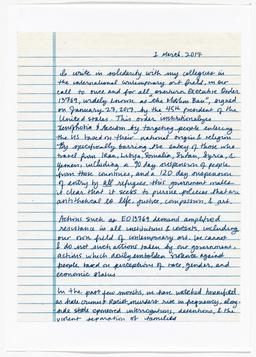 1 March, 2017
I write in solidarity with my colleagues in
the international contemporary art field, in our
call to once and for all overturn Executive Order
13769, widely known as "the Muslim Ban", signed
on January 27, 2017, by the 45th president of the
United States. This order institutionalizes
xenophobia & racism by targeting people entering
the US based on their national origin & religion
by specifically barring the entry of those who
travel from Iran, Libya, Somalia, Sudan, Syria, &
Yemen, including a 90 day suspension of people
from those countries, and a 120 day suspension
of entry by all refugees, this government makes
it clear that it seeks to pursue policies that are
antithetical to life, justice, compassion, & art.
Actions such as EO13769 demand amplified
resistance in all institutions & contexts, including
our own field of contemporary art. We cannot
& do not such actions taken by our government,
actions which daily embolden violence against
people based on perceptions of race, gender, and
economic status
In the past few months, we have watched horrified
as hate crimes
state sponsored interrogations, detentions, & the
violent separation of families